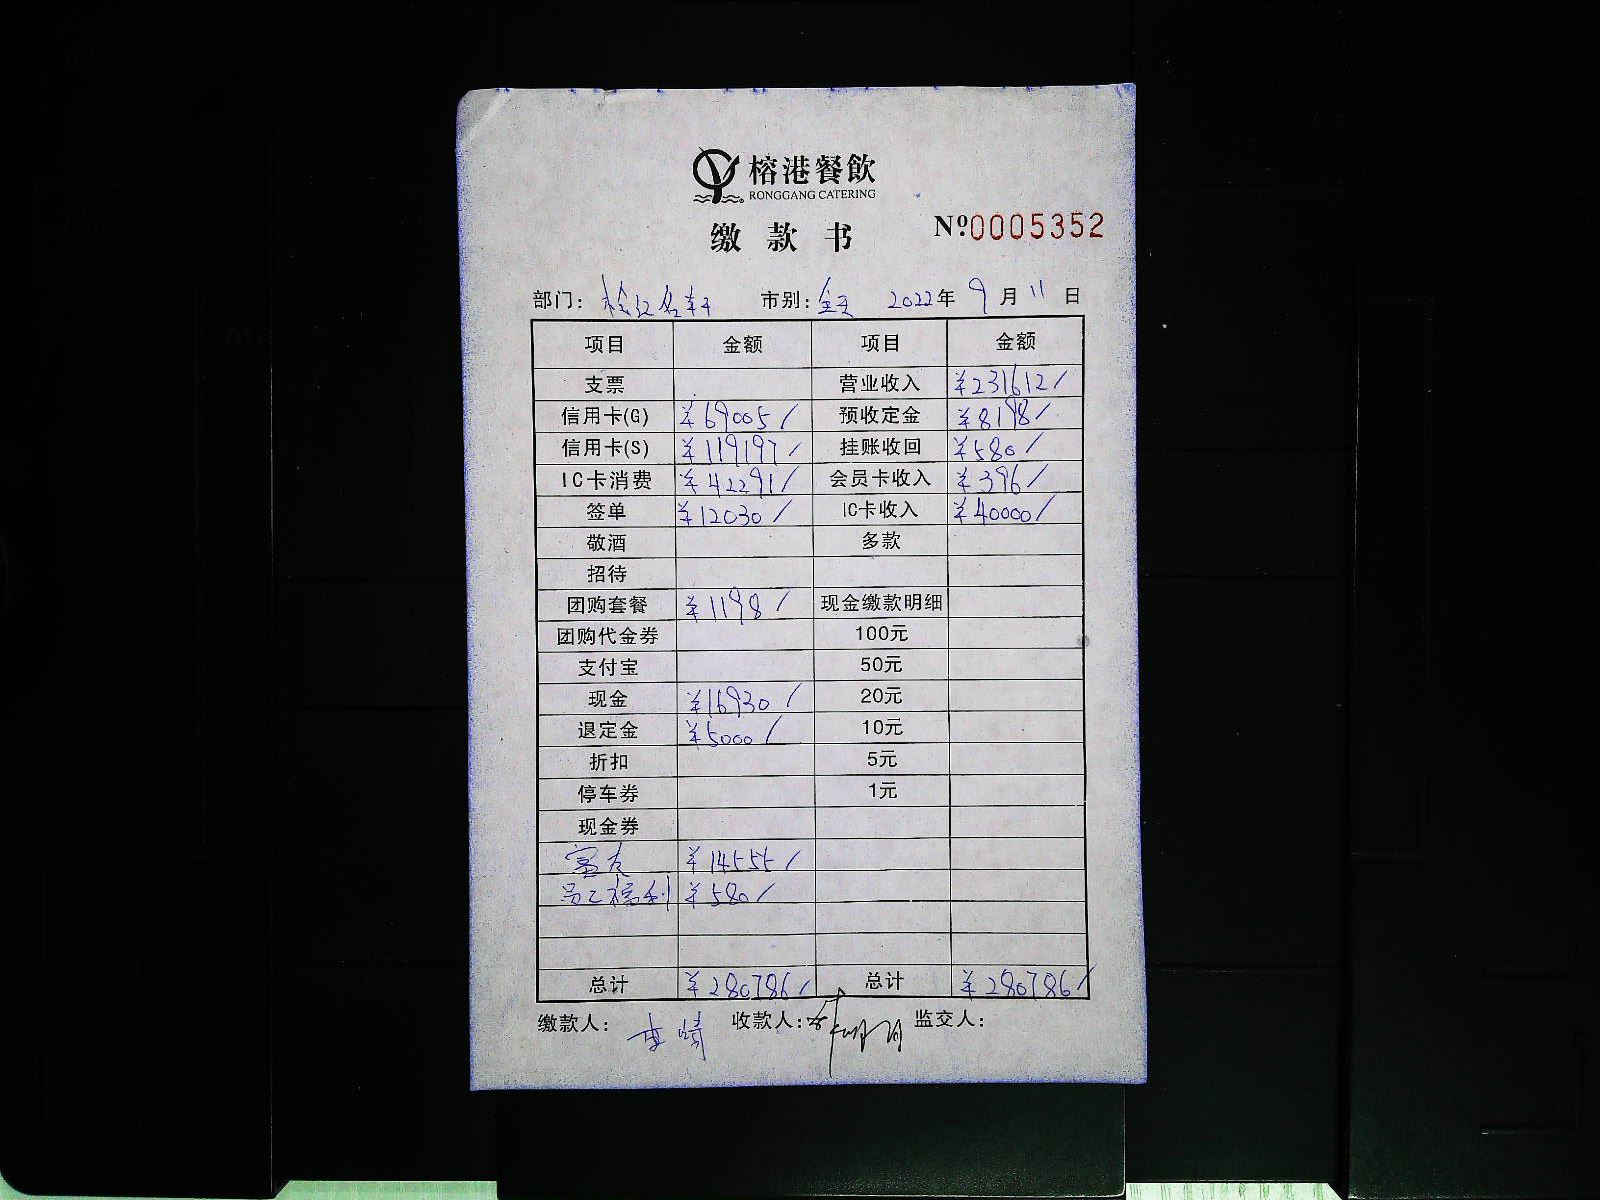 榕港餐飲
RONGGANG CATERING
缴款书 Nº0005352
部门: 名轩 市别: 全天 2022年 9月 11日
项目 金额 项目 金额
支票 营业收入 ¥231612/
信用卡(G) ¥69005/ 预收定金 ¥8198/
信用卡(S) ¥119197/ 挂账收回 ¥580/
IC卡消费 ¥42291/ 会员卡收入 ¥396/
签单 ¥12030/ IC卡收入 ¥40000/
敬酒 多款
招待
团购套餐 ¥1198/ 现金缴款明细
团购代金券 100元
支付宝 50元
现金 ¥16930/ 20元
退定金 ¥5000/ 10元
折扣 5元
停车券 1元
现金券
富友 ¥14555/
员工福利 ¥580/
总计 ¥280786/ 总计 ¥280786/
缴款人: 收款人: 监交人: